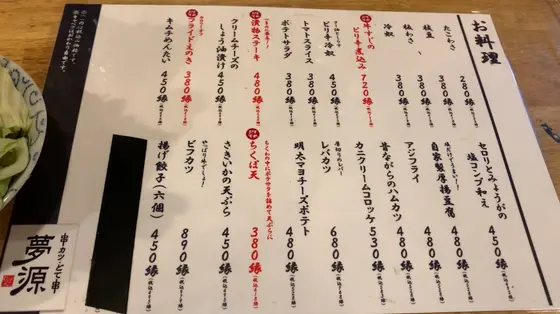 お料理
たこわさ 280縁
枝豆 380縁
板わさ 380縁
冷奴 380縁
ピリ辛冷奴 450縁
牛すじのピリ辛煮込み 720縁
トマトスライス 380縁
ポテトサラダ 380縁
漬物ステーキ 480縁
クリームチーズの
しょう油漬け 450縁
フライドえのき 380縁
キムチめんたい 450縁
セロリとみょうがの
塩コンブ和え 450縁
自家製厚揚豆腐 480縁
アジフライ 480縁
昔ながらのハムカツ 480縁
カニクリームコロッケ 530縁
厚切りのレバー！
レバカツ 680縁
明太マヨチーズポテト 480縁
ちくわの中にポテサラを詰めて天ぷらに
ちくぽ天 380縁
さきいかの天ぷら 450縁
やっぱり牛でしょ！
ビフカツ 890縁
揚げ餃子（六個） 450縁
串カツ・どて串
夢源